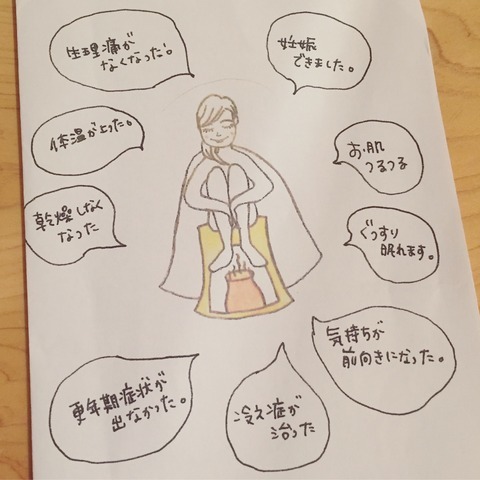 生理痛が
なくなった。
妊娠
できました。
体温が上った。
お肌
つるつる
乾燥しなく
なった
ぐっすり
眠れます。
気持ちが
前向きになった。
更年期症状が
出なかった。
冷え症が
治った